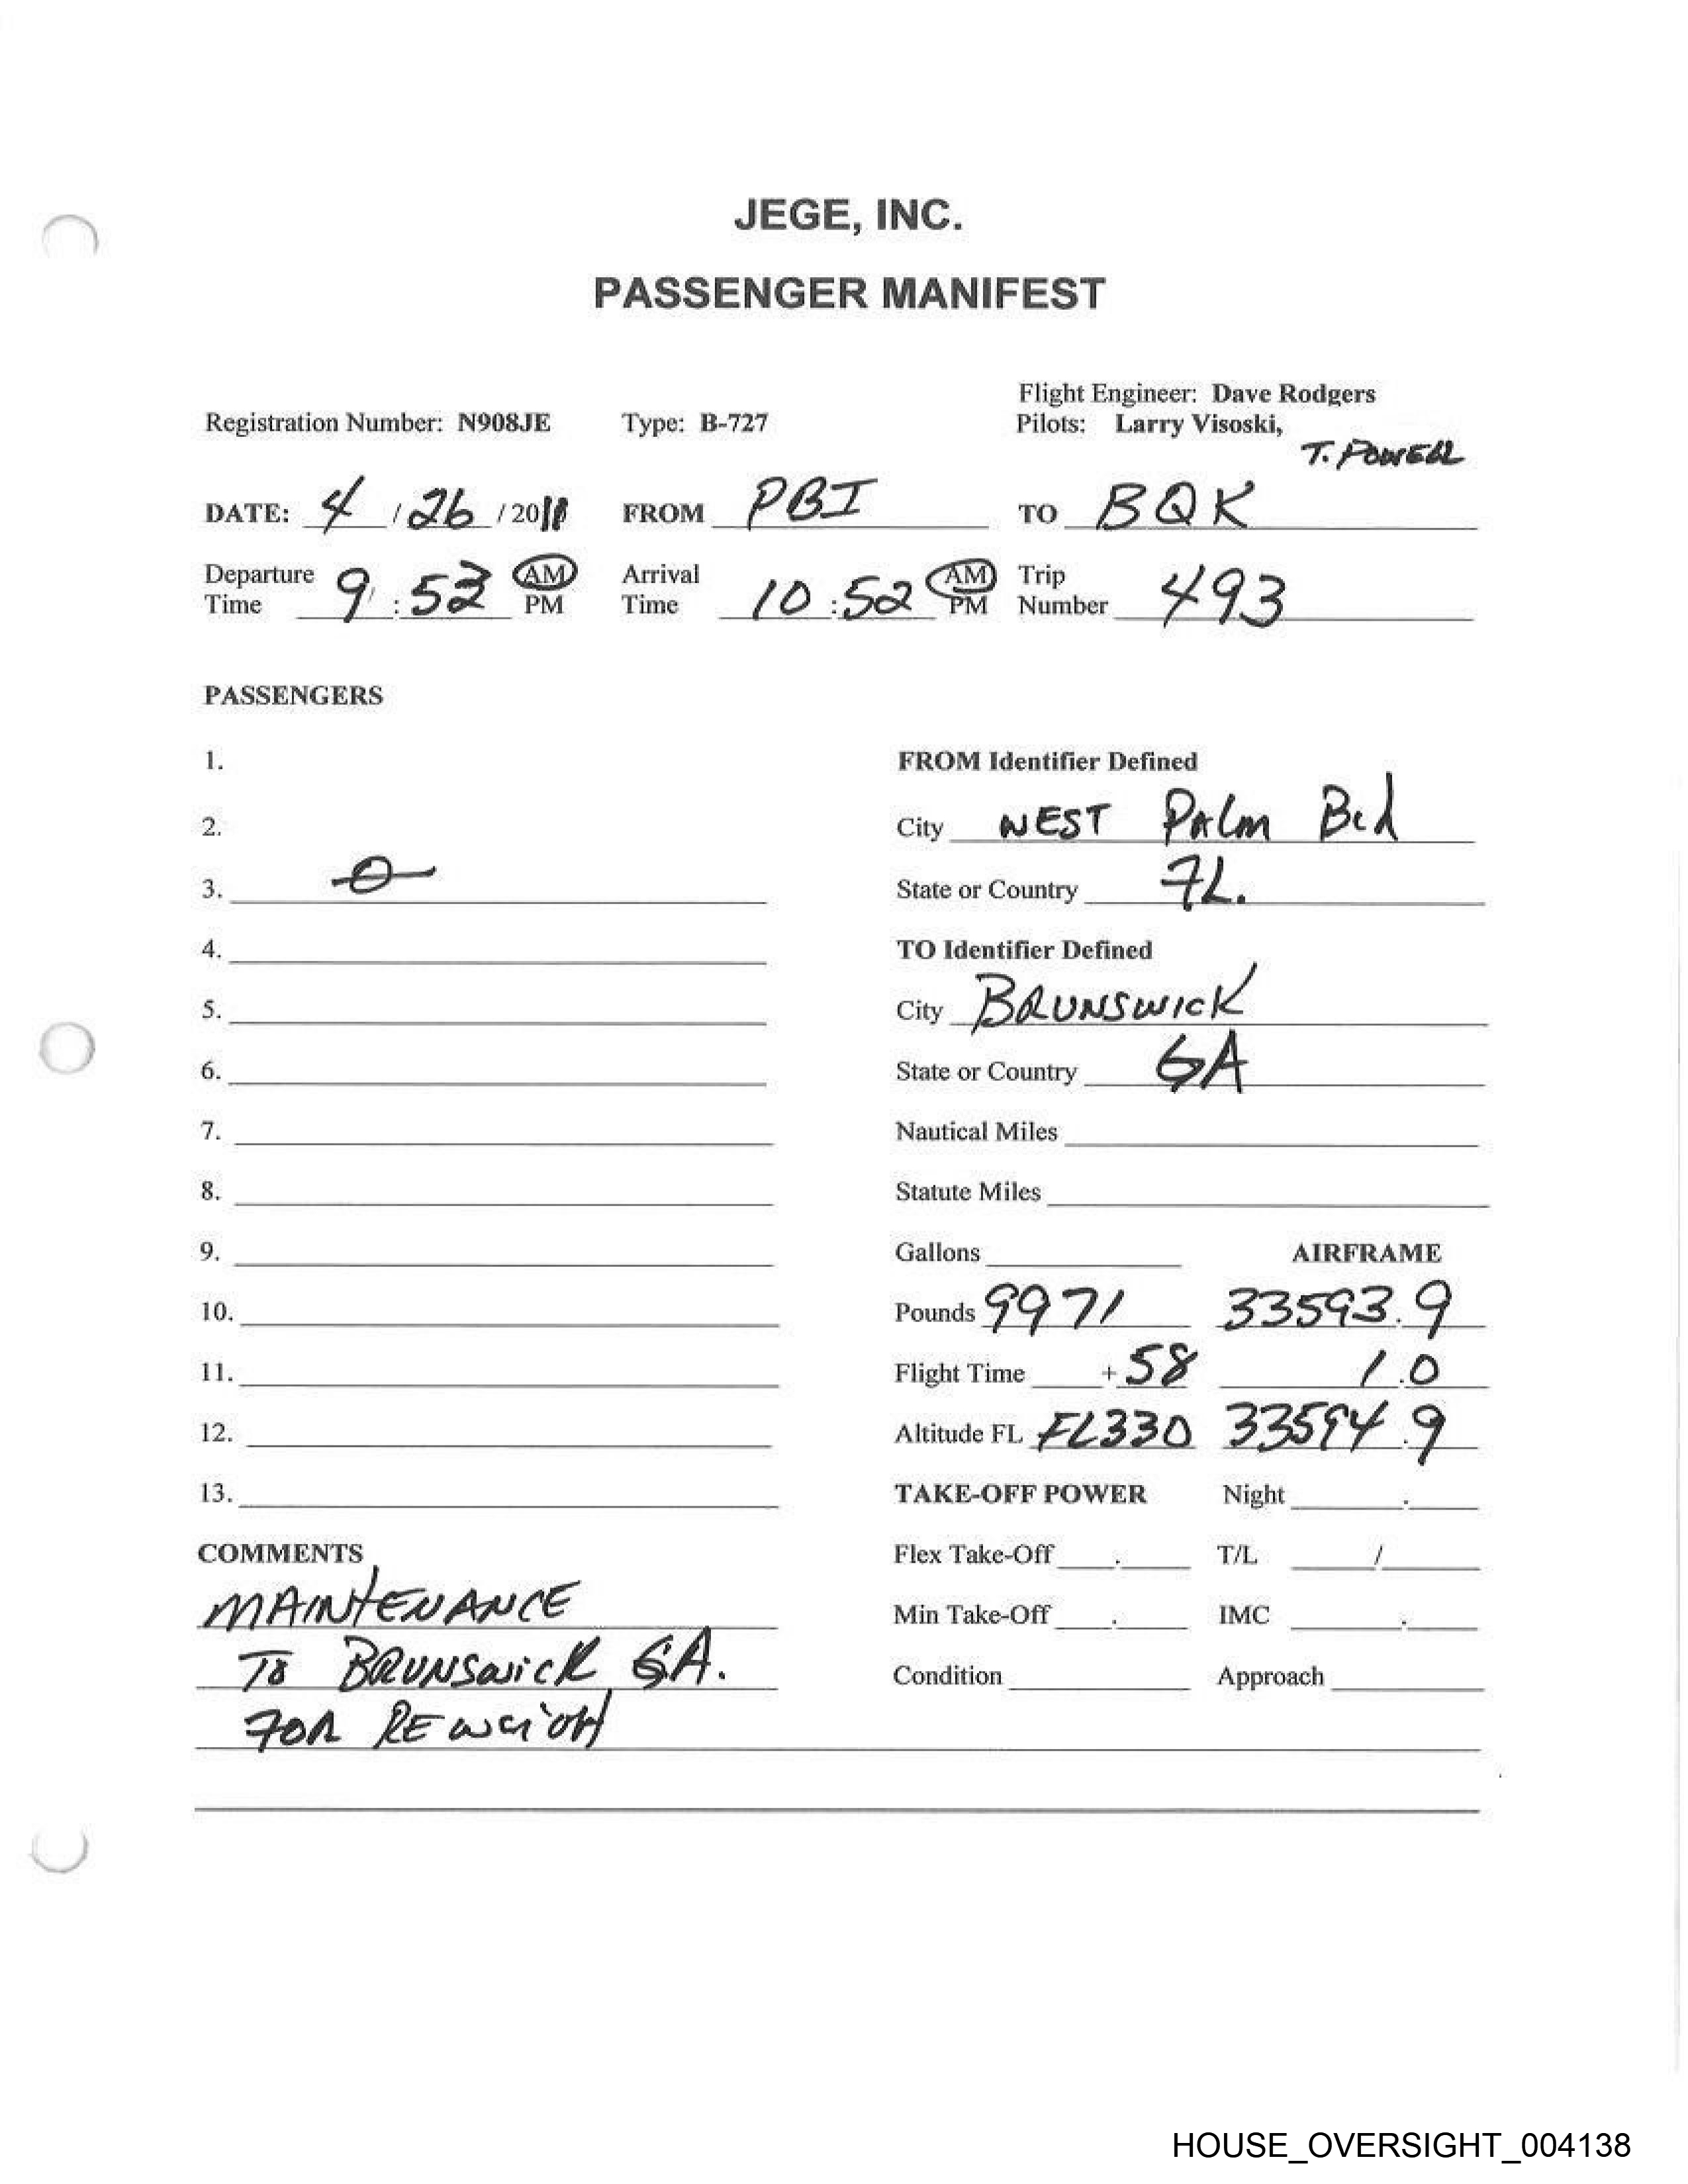 JEGE, INC.
PASSENGER MANIFEST
Flight Engineer: Dave Rodgers
Registration Number: N908JE Type: B-727 Pilots: Larry Visoski,
T. POWELL
DATE: 4 / 26 / 2011 FROM PBI TO BQK
Departure Time 9:52 AM PM Arrival Time 10:52 AM PM Trip Number 493
PASSENGERS
1. FROM Identifier Defined
2. City WEST PALM Bch
3. 0 State or Country FL.
4. TO Identifier Defined
5. City BRUNSWICK
6. State or Country GA
7. Nautical Miles
8. Statute Miles
9. Gallons AIRFRAME
10. Pounds 9971 33593.9
11. Flight Time + 58 1.0
12. Altitude FL FL330 33594.9
13. TAKE-OFF POWER Night .
COMMENTS Flex Take-Off . T/L /
MAINTENANCE Min Take-Off . IMC .
TO BRUNSWICK GA. Condition Approach
FOR REWEIGH
HOUSE_OVERSIGHT_004138